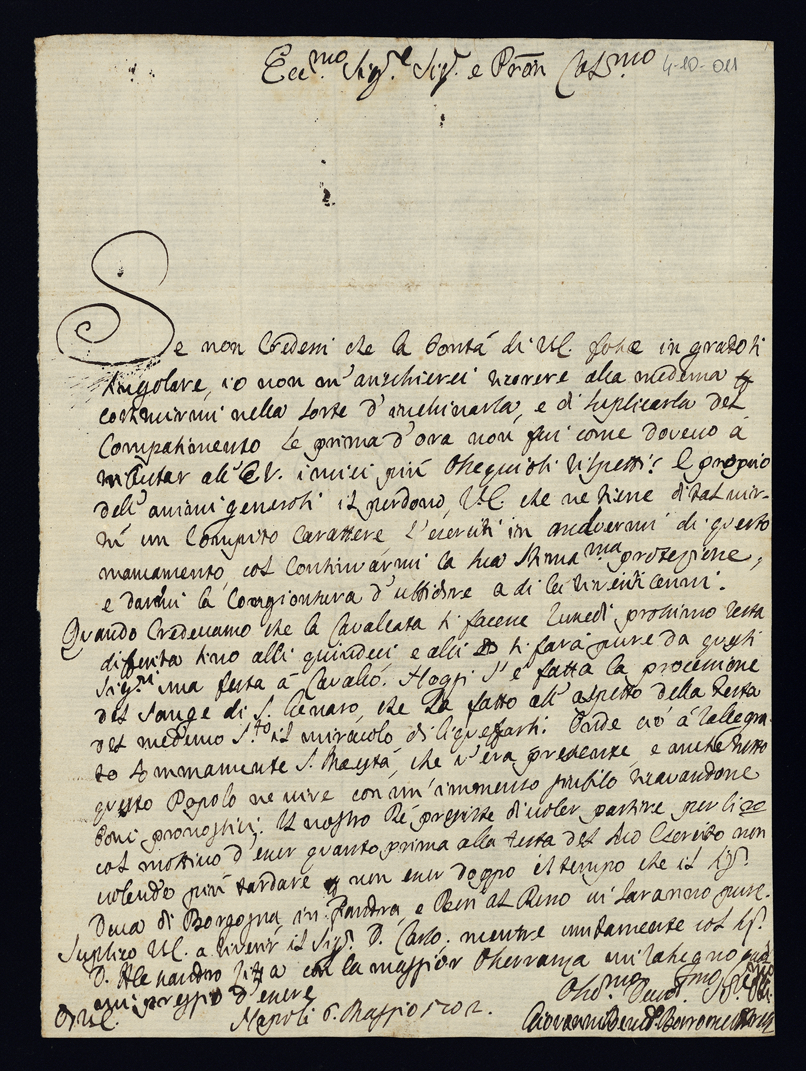 Ecc.mo Sig.e Sig.r e Pron Col.mo 4-10-011
Se non Credessi che la bontà di V.E. fosse in grado sì
singolare, io non m'arischierei ricorrere alla medema
costituirmi nella sorte d'inchinarla, e di suplicarla del
Compatimento se prima d'ora non fui come dovevo à
tributar all'E.V. i miei più Ossequiosi rispetti: È proprio
dell'animi generosi il perdono, V.E. che ne tiene di tal vir-
tù un Compito Carattere l'eserciti in de questo
mancamento, col Continuarmi la sua Stima.ma protezione,
e darmi la Congiontura d'ubbidire a di lei riveriti cenni.
Quando Credevamo che la Cavalcata si facesse lunedì prossimo resta
differita sino alli quindeci e alli si farà pure da questi
Sig.ri una festa à Cavallo. Hoggi s'è fatta la processione
del Sangue di S. Genaro, che ha fatto all'aspetto della testa
del medemo S.to il miracolo di liquefarsi. Onde ciò à rallegra-
to sommamente S. Maestà, che v'era presente, e anche tutto
questo Popolo ne vive con un'immenso giubilo ricavandone
boni pronostici. Il nostro Ré persiste di voler partire per li 20
col mottivo d'esser quanto prima alla testa del suo Esercito non
volendo più tardare non esser doppo il tempo che il Sig.r
Duca di Borgogna in Fiandra, e Beri al Reno vi saranno pure.
Suplico V.E. a riverir il Sig.r D. Carlo, mentre unitamente col Sig.r
D. Alessandro con la maggior Osservanza mi rassegno
mi preggio d'essere
D V.E. Napoli 6. Maggio 1702.
Obl.mo Devot.mo
Giovanni Bened.o Borromeo